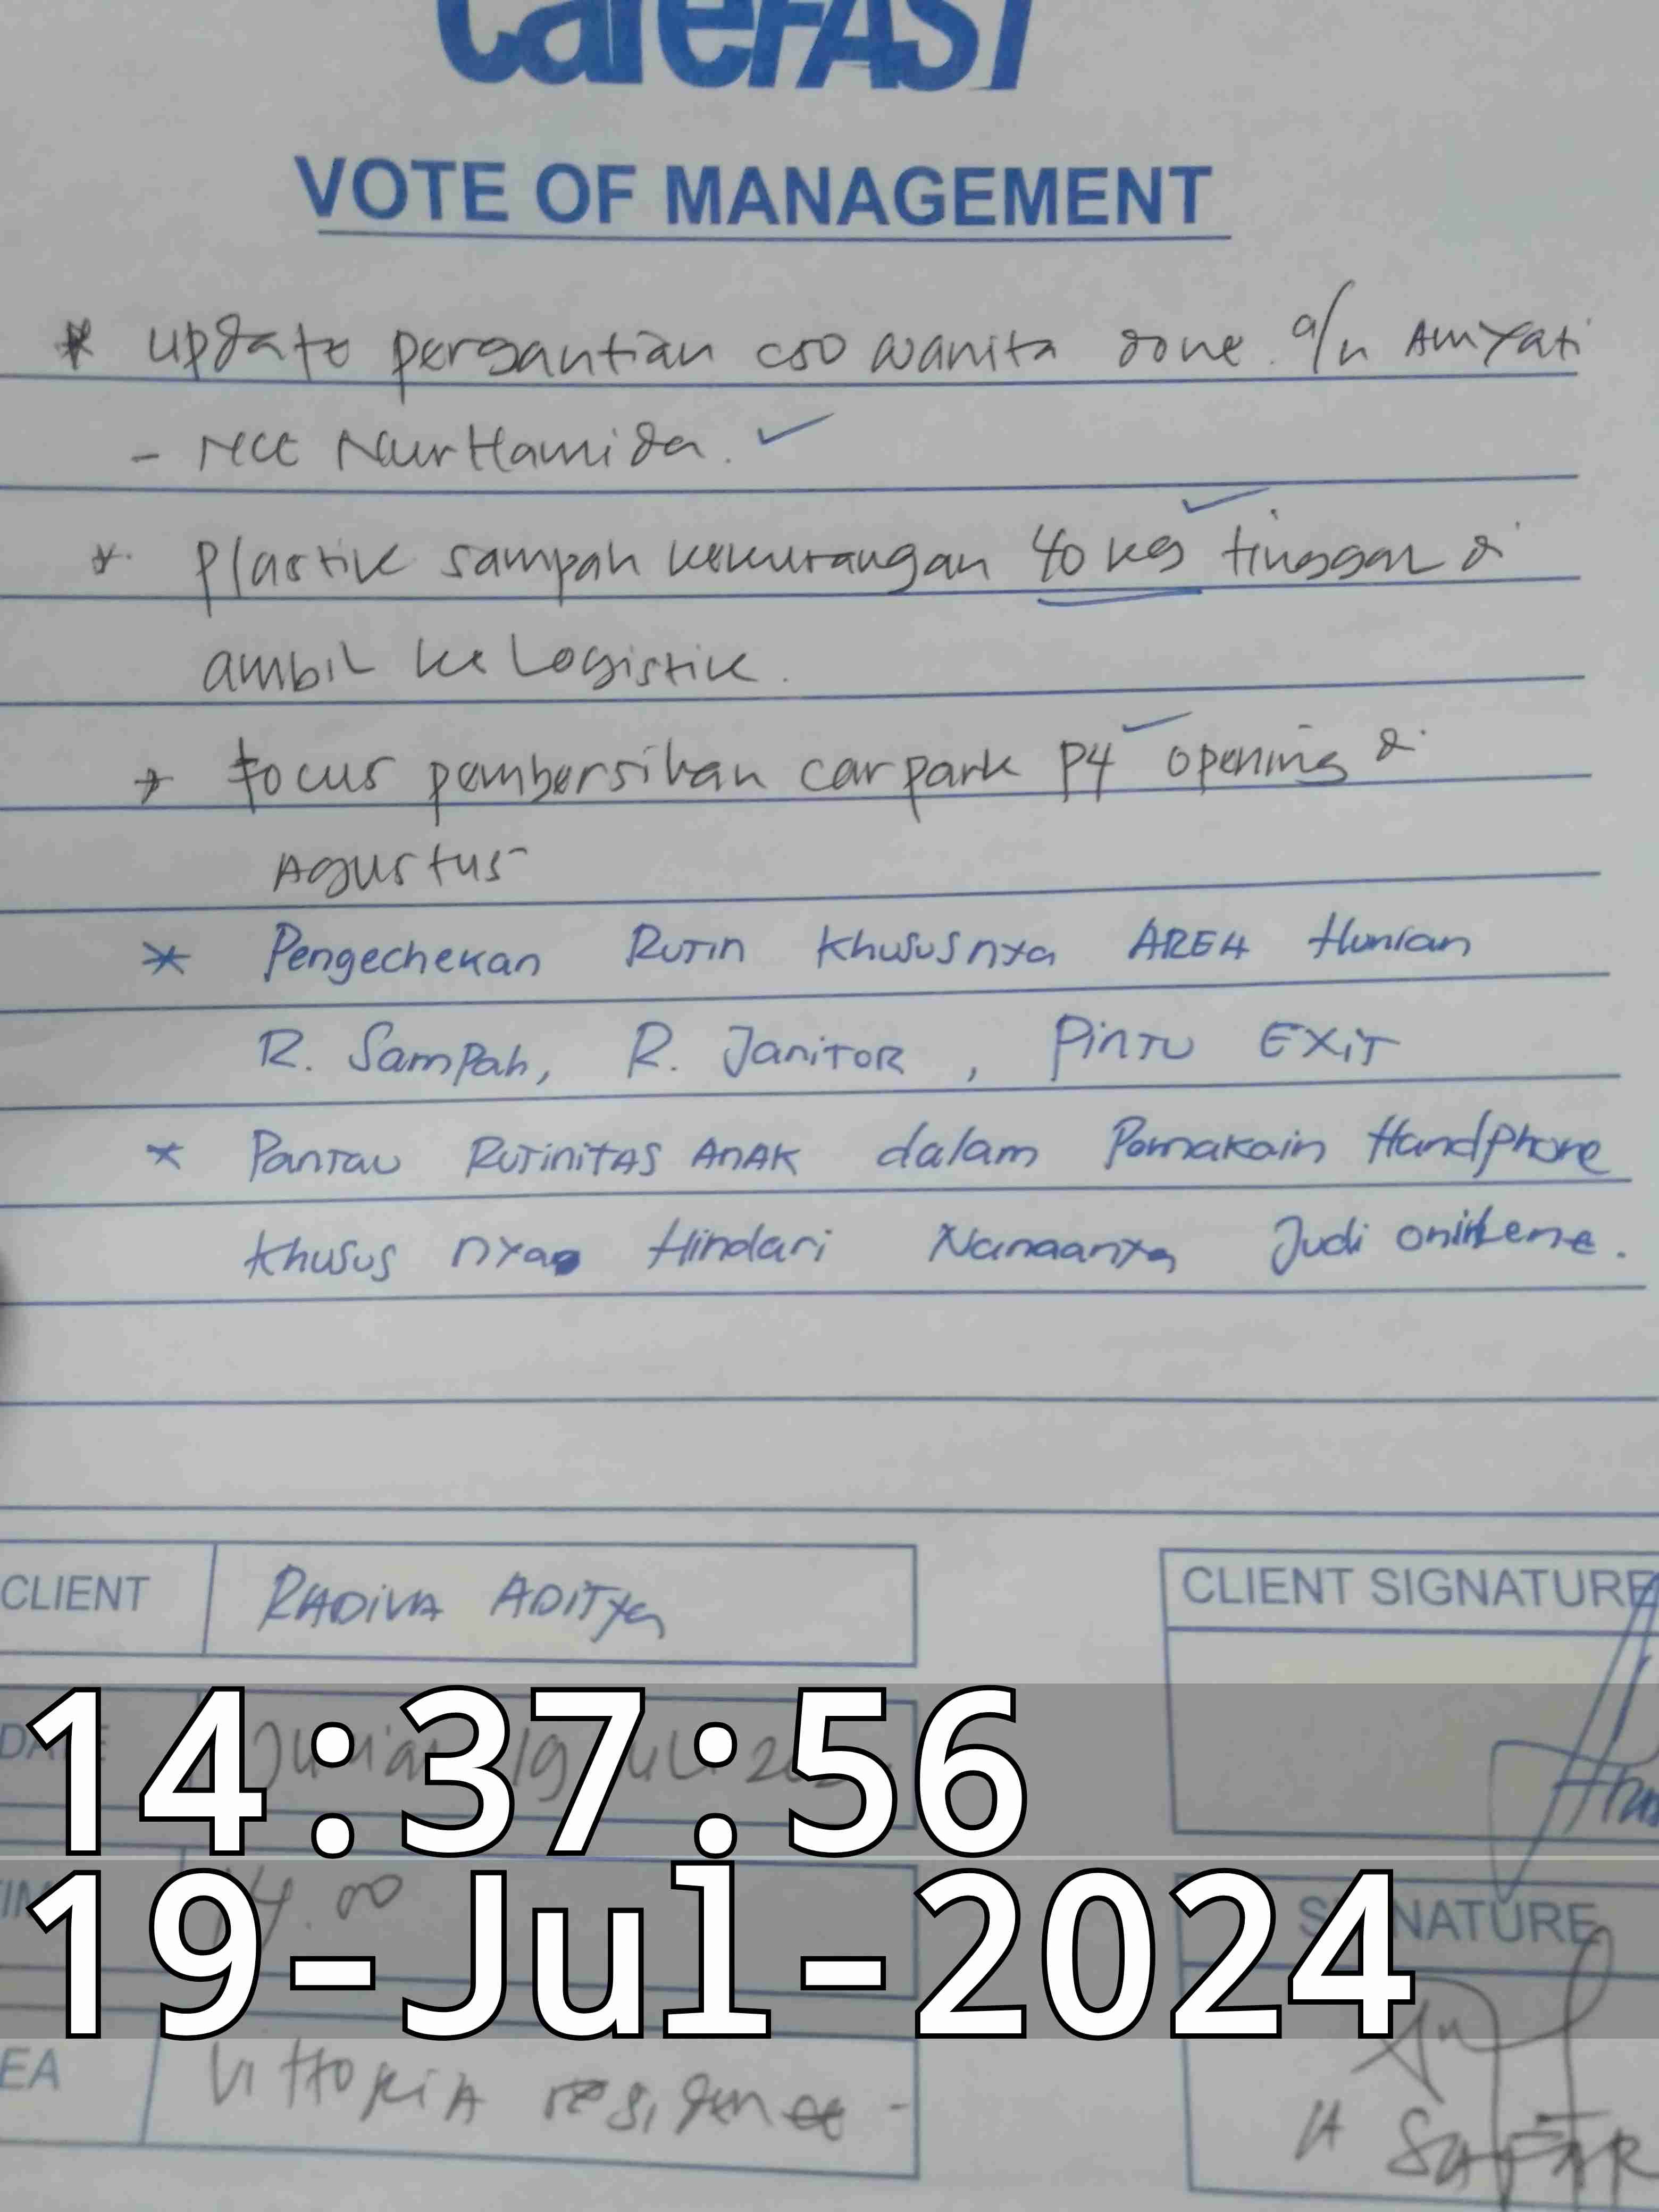 CareFAST
VOTE OF MANAGEMENT
* Update pergantian cso wanita done. a/n Amyati
- rec Nur Hamida. ✓
* Plastik sampah kekurangan 40 kg tinggal di
ambil ke Logistik.
* Focus pembersihan carpark P4 opening di
Agustus
* Pengechekan Rutin Khususnya AREA Hunian
R. Sampah, R. Janitor, Pintu EXIT
* Pantau Rutinitas Anak dalam Pemakain Handphone
Khusus nya Hindari Judi
CLIENT
RADIVA ADITYA
CLIENT SIGNATURE
14:37:56
14.00
SIGNATURE
19-Jul-2024
EA
Vittoria residence -